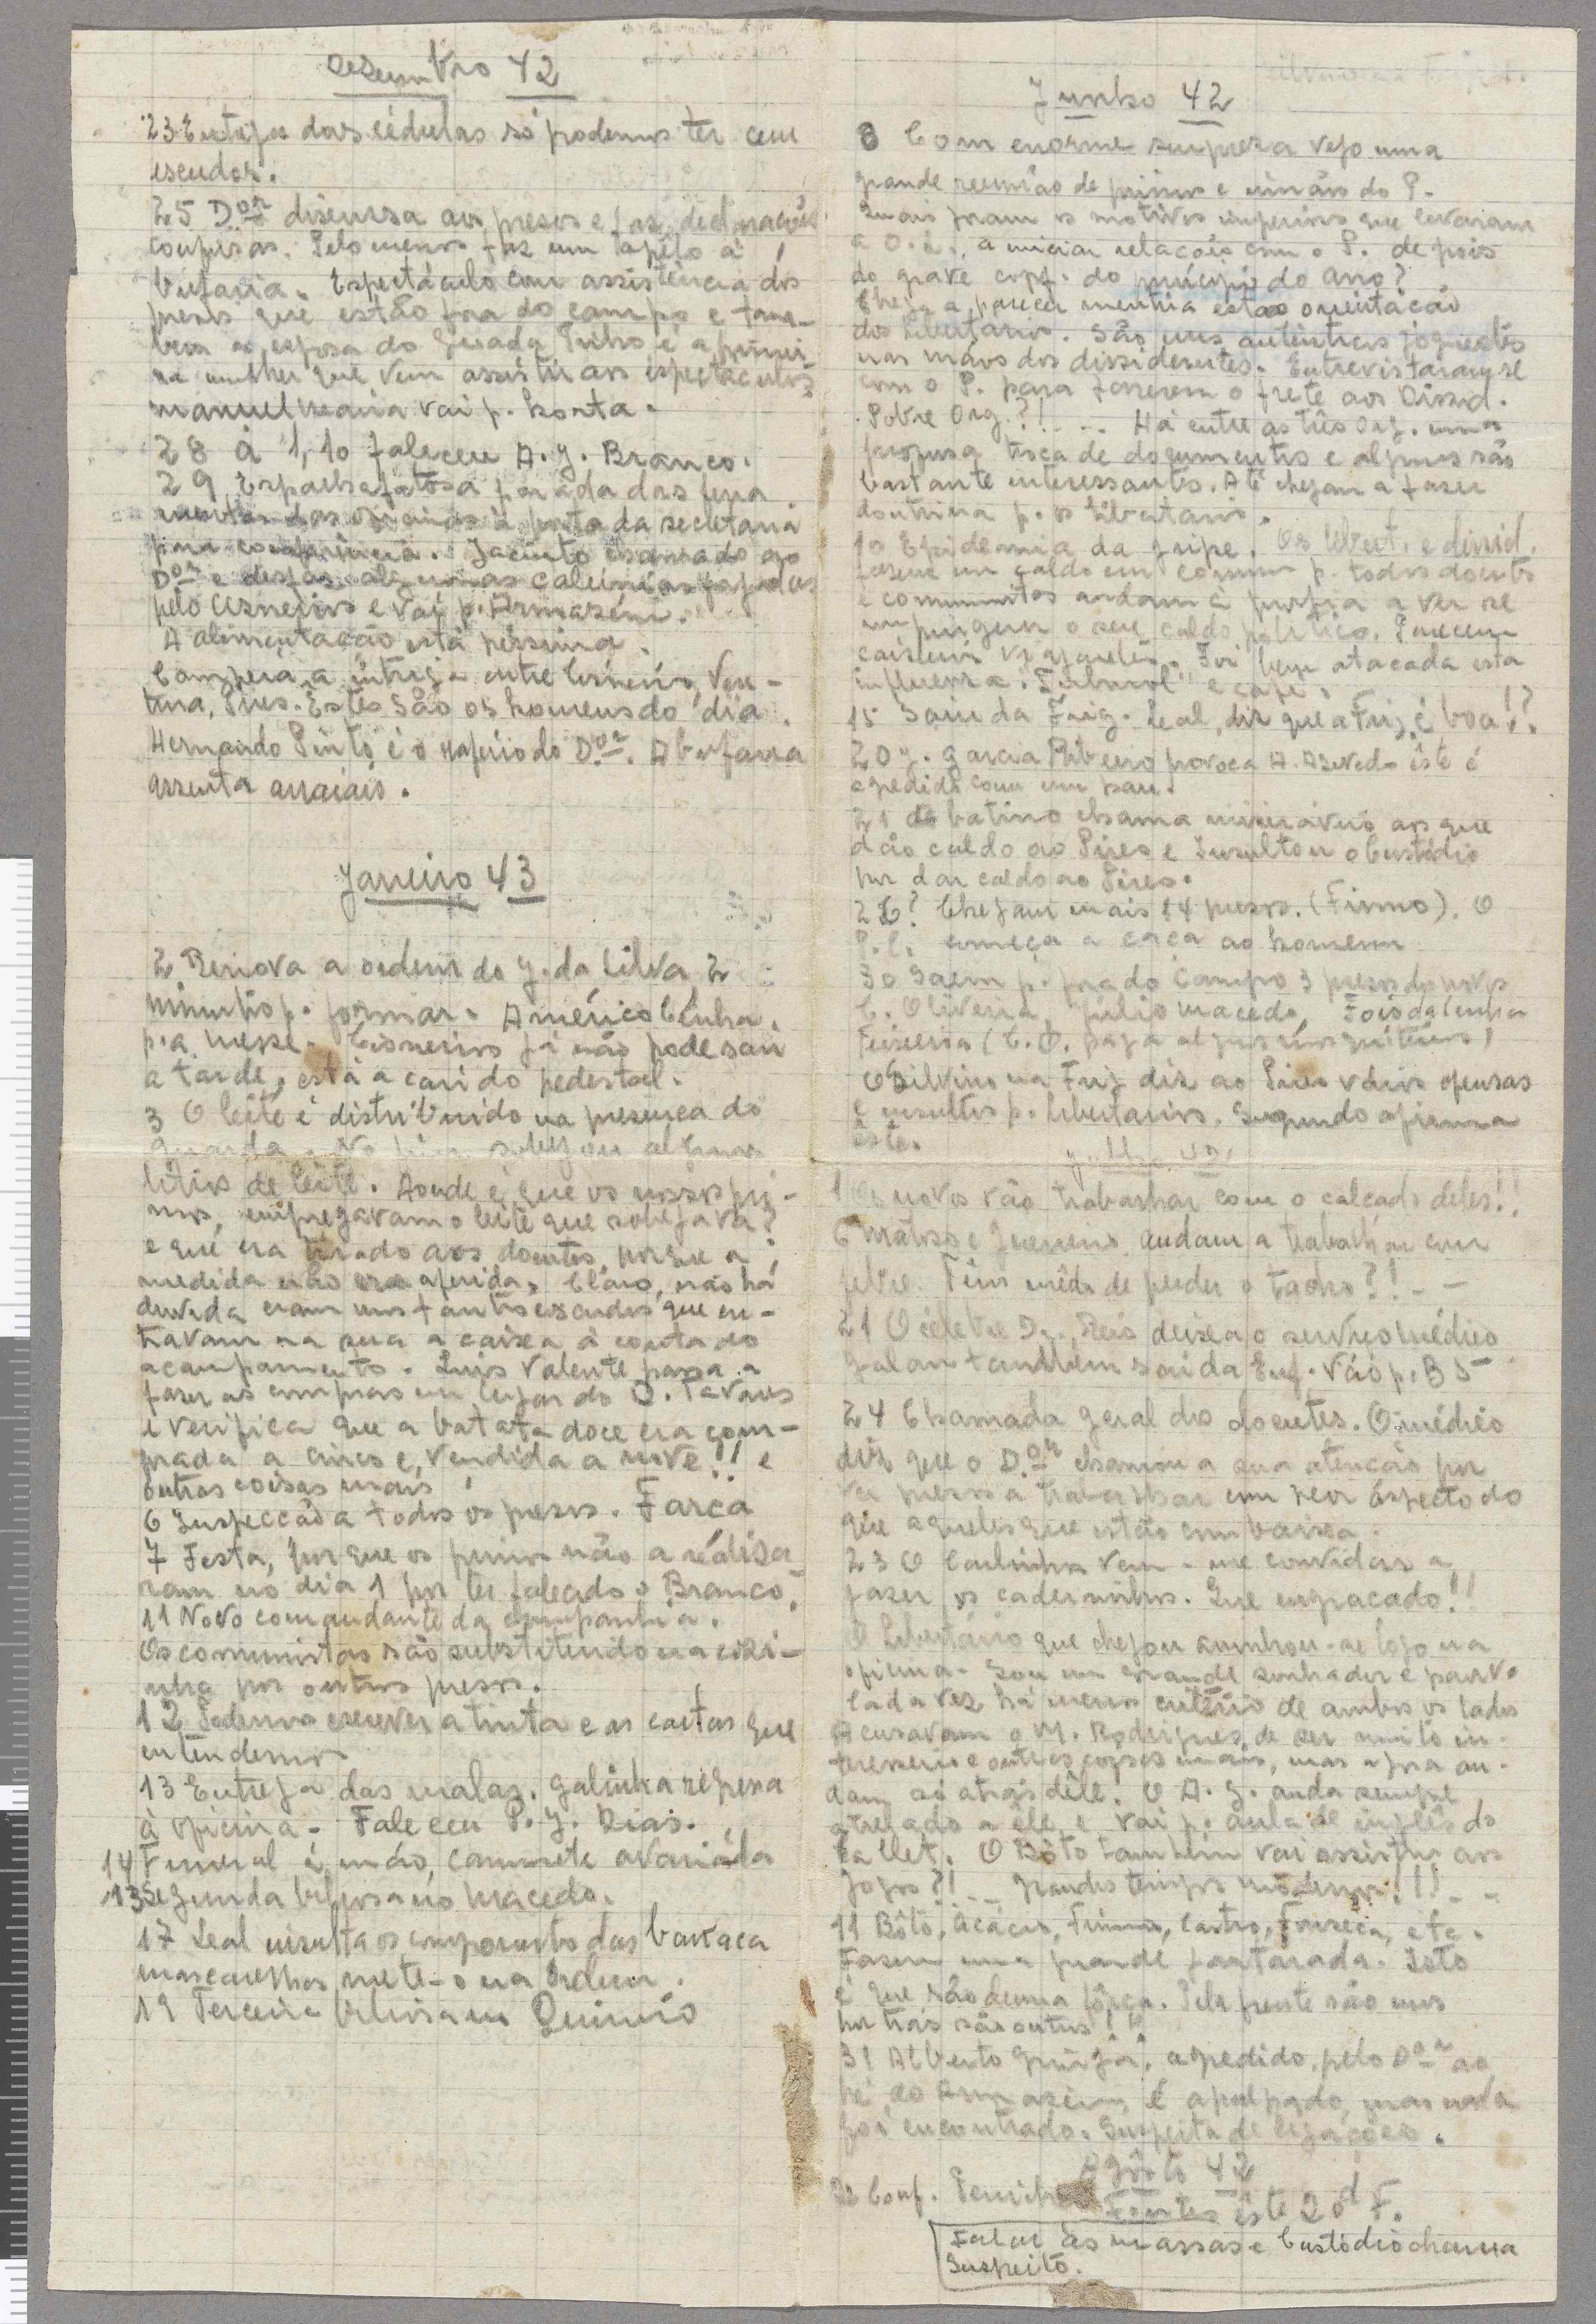 Dezembro 42
23 Entrega das cédulas só podemos ter cem
escudos.
25 D.or discursa aos presos e faz declarações
confusas. Pelo menos faz um apêlo à
bufaria. Espectáculo com assistência dos
presos que estão fora do campo e tam-
bem a esposa do Seixada Pinho é a primei
ra mulher que vem assistir aos espectaculos
Manuel Maria vai p. horta.
28 à 1,10 faleceu A. J. Branco.
29 Espalhafatosa parada das ferra
mentas das oficinas à porta da secretaria
para conferência. Jacinto chamado ao
D.or e desfaz algumas calúnias
pelo Cisneiros e vai p. Armazém.
A alimentação está péssima.
Começa a intriga entre Cisneiros, Ven-
tura, Pires. Estes são os homens do dia.
Hernando Pinto é o do D.or. A bufaria
assenta arraiais.
Janeiro 43
2 Renova a ordem do J. da Silva 2
minutos p. formar. Américo Cunha,
p. a messe. Cisneiros já não pode sair
à tarde, está a cair do pedestal.
3 O leite é distribuido na presença do
guarda. No fim sobejou alguns
litros de leite. Aonde é que os nossos pri-
mos, empregavam o leite que sobejava?
e que era tirado aos doentes, porque a
medida não era aferida. Claro, não há
duvida eram uns tantos escudos que en-
travam na sua a caixa à conta do
acampamento. Luis Valente passa a
fazer as compras em lugar do O. Tavares
e verifica que a batata doce era com-
prada a cinco e, vendida a nove!! e
outras coisas mais
6 Inspecção a todos os presos. Farça
7 Festa, porque os primos não a realiza
ram no dia 1 por ter falecido o Branco.
11 Novo comandante da companhia.
Os comunistas são substituidos na cozi-
nha por outros presos.
12 Podemos escrever a tinta e as cartas que
entendermos
13 Entrega das malas. Galinha regressa
à oficina. Faleceu P. J. Dias.
14 Funeral é máo, camionete avariada
13 Segunda biliosa no Macedo.
17 Leal insulta os componentes das barraca
Mascarenhas mete-o na ordem.
19 Terceira biliosa em Quirino
Junho 42
8 Com enorme surpreza vejo uma
grande reunião de primos e irmãos do P.
Quais foram os motivos superiores que levaram
a O. L. a iniciar relações com o P. depois
do grave conf. do principio do ano?
Chega a parecer mentira esta orientação
dos libertários. São uns autênticos joguetes
nas mãos dos dissidentes. Entrevistaram-se
com o P. para fazerem o frete aos Dissid.
Pobre Org.?!... Há entre as três Org. uma
troca de documentos e alguns são
bastante interessantes. Até chegam a fazer
doutrina p. os libertarios.
10 Epidemia da gripe. Os libert. e dissid.
fazem um caldo em comum p. todos doentes
e comunistas andam à porfia a ver se
impingem o seu caldo politico. Parecem
Foi bem atacada esta
influenza. e café.
15 Saiu da Frig. Leal, diz que a Frig. é boa!?
20 J. Garcia Ribeiro provoca A. Azevedo êste é
agredido com um pau.
21 Sabatino chama miseráveis aos que
dão caldo ao Pires e insultou o Custódio
por dar caldo ao Pires.
Chegam mais 14 presos. (Firmo). O
P.C. começa a caça ao homem
30 Saem p. fora do Campo 3 presos dos novos
C. Oliveira, Júlio Macedo, Fois da Cunha
Teixeira
O Silvino na Frig diz ao Pires varias ofensas
e insultos p. libertarios. Segundo afirma
êste.
Julho 42
1 Os novos vão trabalhar com o calçado deles!!
6 Matoso e Gueneiro andam a trabalhar com
febre. Têm mêdo de perder o tacho?!--
21 O célebre Dr. Reis deixa o serviço médico
Galan tambem sai da Enf. Vão p. B 5
24 Chamada geral dos doentes. O médico
diz que o D.or chamou a sua atenção por
ver presos a trabalhar com peor aspecto do
que aqueles que estão com baixa.
23 O Carlinhos vem-me convidar a
fazer os caderninhos. Que engraçado!!
O Libertário que chegou aninhou-se logo na
oficina. Sou um grande sonhador e parvo
Cada vez há menos critério de ambos os lados
Acusavam o M. Rodrigues de ser muito in-
teresseiro e outras coisas mais, mas agora an-
dam só atrás dêle. O A. G. anda sempre
atrelado a êle e vai p. aula de inglês do
Tallet. O Bôto tambem vai assistir aos
jogos?!... Grandes tempos modernos!!!--
11 Bôto, Acácio, Firmo, Castro, Fonseca, etc.
fazem uma grande jantarada. Isto
é que são de uma fôrça. Pela frente são uns
por trás são outros!!
31 Alberto agredido, pelo D.or ao
pé do armazém, é apalpado, mas nada
foi encontrado. Suspeita de ligações.
Agôsto 42
22 Conf.
Fontes êste 20 d F.
Falar às massas e Custódio chama
Suspeito.